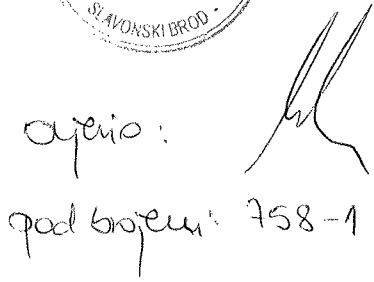 SLAVONSKI BROD -
ocjenio:
pod brojem: 758-1